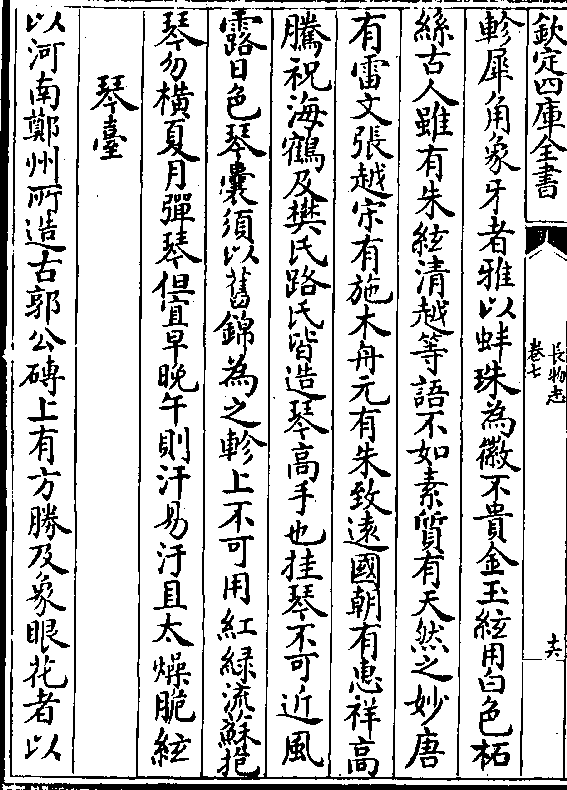 欽定四庫全書
長物志
卷七
十六
軫犀角象牙者雅以蚌珠為徽不貴金玉絃用白色柘
絲古人雖有朱絃清越等語不如素質有天然之妙唐
有雷文張越宋有施木舟元有朱致遠國朝有惠祥高
騰祝海鶴及樊氏路氏皆造琴高手也挂琴不可近風
露日色琴囊須以舊錦為之軫上不可用紅綠流蘇抱
琴勿橫夏月彈琴但宜早晚午則汗易汙且太燥脆絃
琴臺
以河南鄭州所造古郭公磚上有方勝及象眼花者以